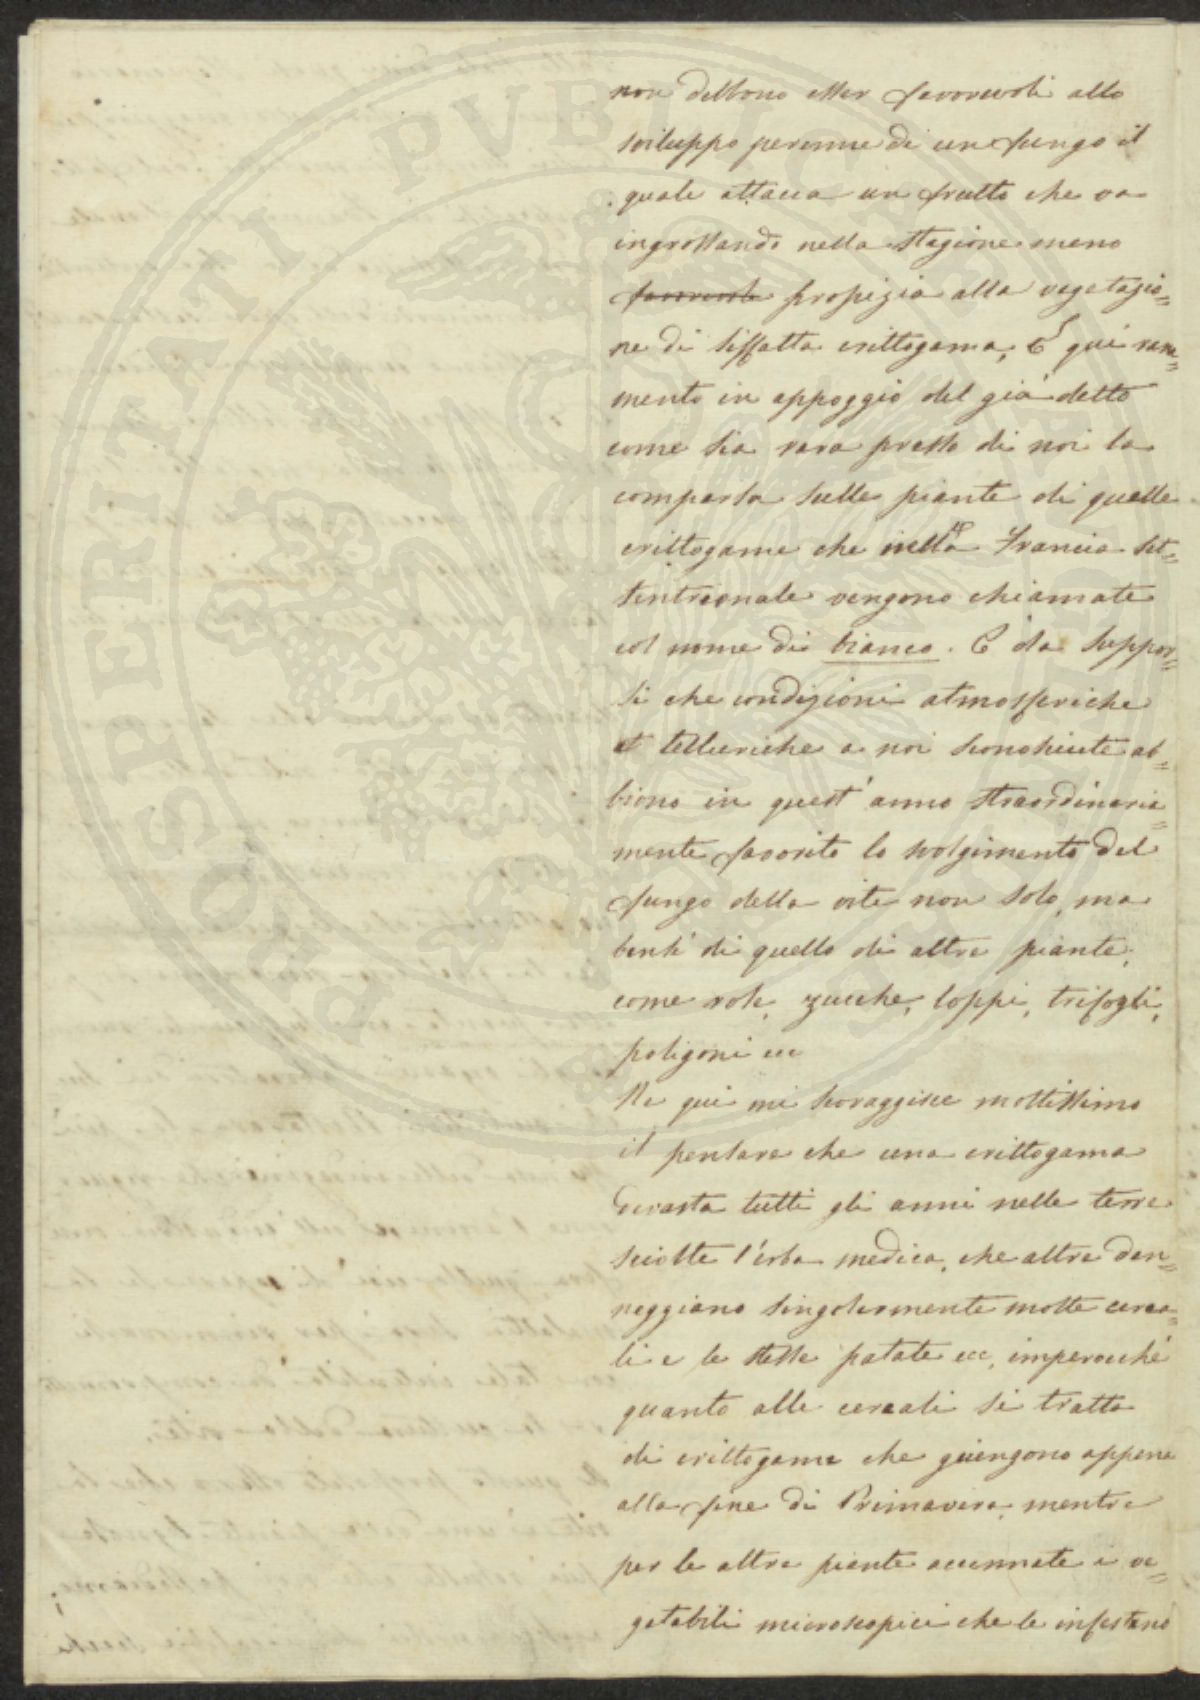 non debbono esser favorevoli allo
sviluppo perenne di un fungo il
quale attacca un frutto che va
ingrossando nella stagione meno
favorevole propizia alla vegetazio=
ne di siffatta crittogama. E quì ram=
mento in appoggio del già detto
come sia rara presso di noi la
comparsa sulle piante di quelle
crittogame che nella Francia Set=
tentrionale vengono chiamate
col nome di bianco. E da suppor=
si che condizioni atmosferiche
et telluriche a noi sconosciute ab=
biano in quest'anno straordinaria=
mente favorito lo svolgimento del
fungo della vite non solo, ma
bensì di quello di altre piante,
come rose, zucche, loppi, trifogli,
poligoni ecc
Ne quì mi scoraggisce moltissimo
il pensare che una crittogama
devasta tutti gli anni nelle terre
sciolte l'erba medica, che altre dan=
neggiano singolarmente molte cerea=
li e le stesse patate ecc, imperocché
quanto alle cereali si tratta
di crittogame che giungono appena
alla fine di Primavera, mentre
per le altre piante accennate i ve=
getabili microscopici che le infestano
PROSPERITATI PVBLICAE